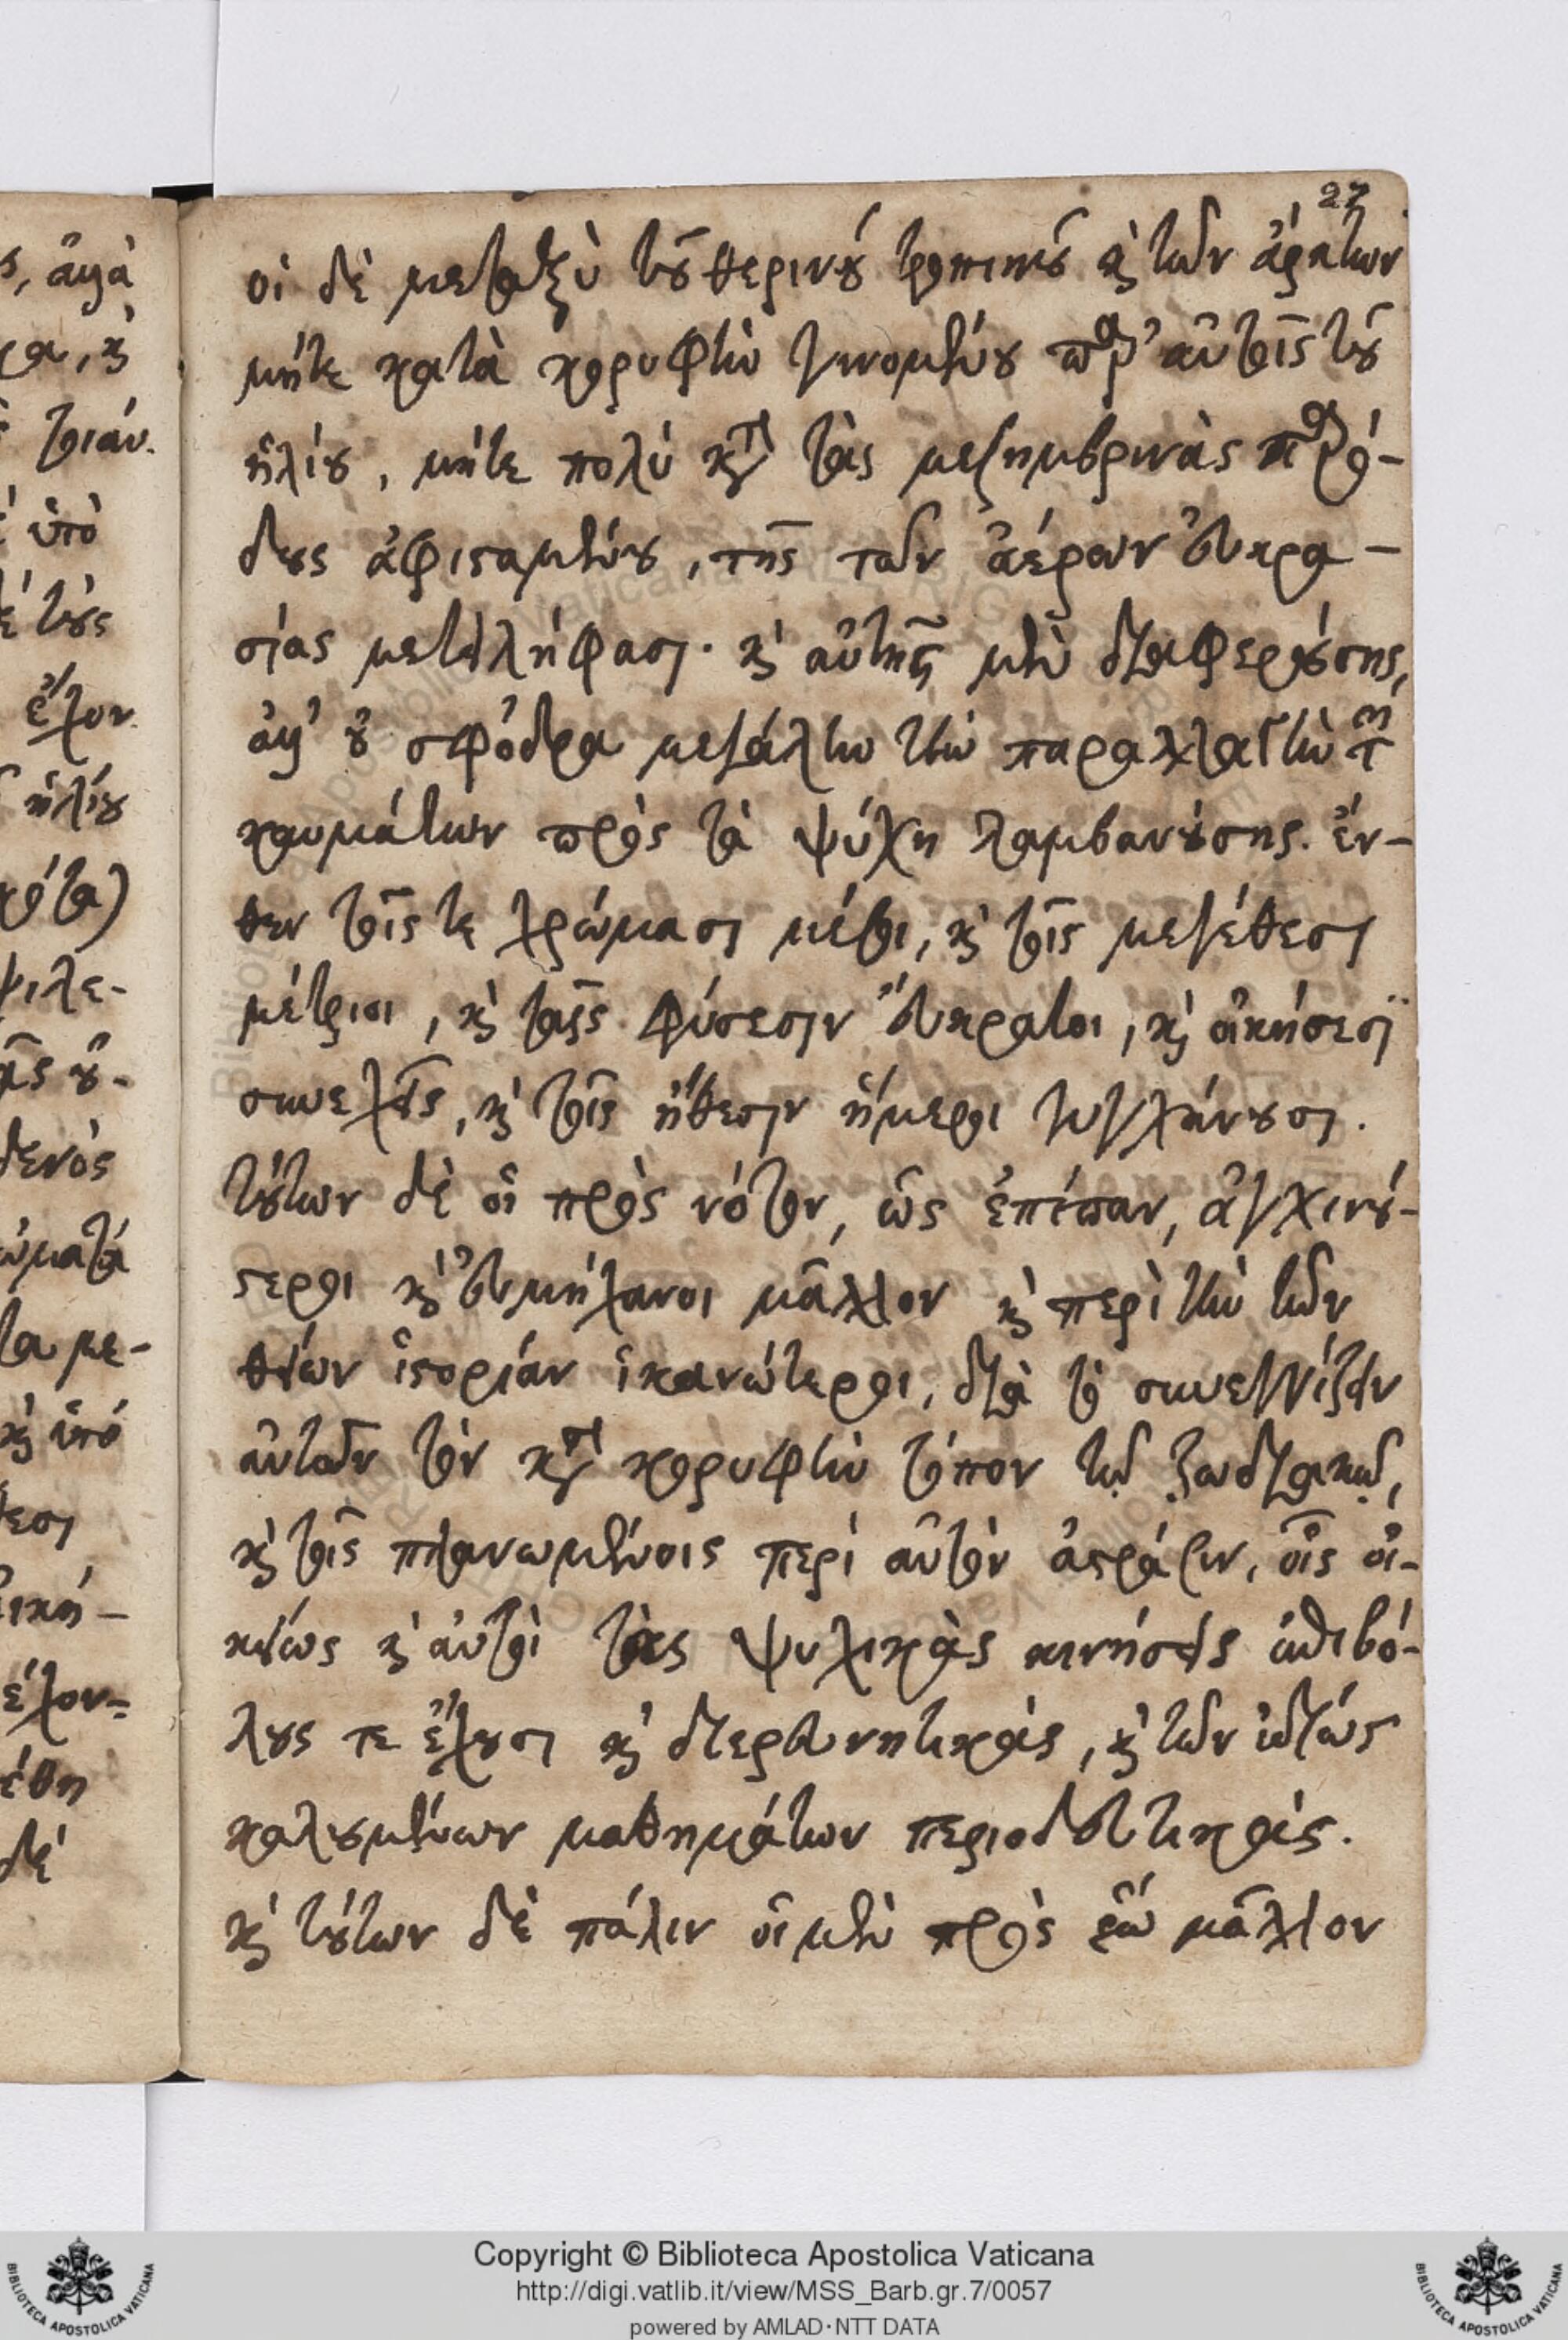 27
οἱ δὲ μεταξὺ τοῦ θερινοῦ τροπικοῦ καὶ τῶν ἄρκτων
μήτε κατὰ κορυφὴν γινομένου παρ' αὐτοῖς τοῦ
ἡλίου, μήτε πολὺ κατὰ τὰς μεσημβρινὰς παρό-
δους ἀφισταμένου, τῆς τῶν ἀέρων εὐκρα-
σίας μετειλήφασι. καὶ αὐτῆς μὲν διαφερούσης,
ἀλλ' οὐ σφόδρα μεγάλην τὴν παραλλαγὴν τῶν
καυμάτων πρὸς τὰ ψύχη λαμβανούσης. ἔν-
θεν τοῖς τε χρώμασι μέσοι, καὶ τοῖς μεγέθεσι
μέτριοι, καὶ ταῖς φύσεσιν εὔκρατοι, καὶ οἰκήσεσι
συνεχεῖς, καὶ τοῖς ἤθεσιν ἥμεροι τυγχάνουσι.
τούτων δὲ οἱ πρὸς νότον, ὡς ἐπίπαν, ἀγχινού-
στεροι καὶ εὐμήχανοι μᾶλλον καὶ περὶ τὴν τῶν
θείων ἱστορίαν ἱκανώτεροι, διὰ τὸ συνεγγίζειν
αὐτῶν τὸν κατὰ κορυφὴν τόπον τῷ ζωδιακῷ,
καὶ τοῖς πλανωμένοις περὶ αὐτὸν ἀστράσιν, οἷς οἰ-
κείως καὶ αὐτοὶ τὰς ψυχικὰς κινήσεις ἐπιβό-
λους τε ἔχουσι καὶ διερευνητικάς, καὶ τῶν ἰδίως
καλουμένων μαθημάτων περιοδευτικάς.
καὶ τούτων δὲ πάλιν οἱ μὲν πρὸς ἕω μᾶλλον
Copyright © Biblioteca Apostolica Vaticana
http://digi.vatlib.it/view/MSS_Barb.gr.7/0057
powered by AMLAD·NTT DATA